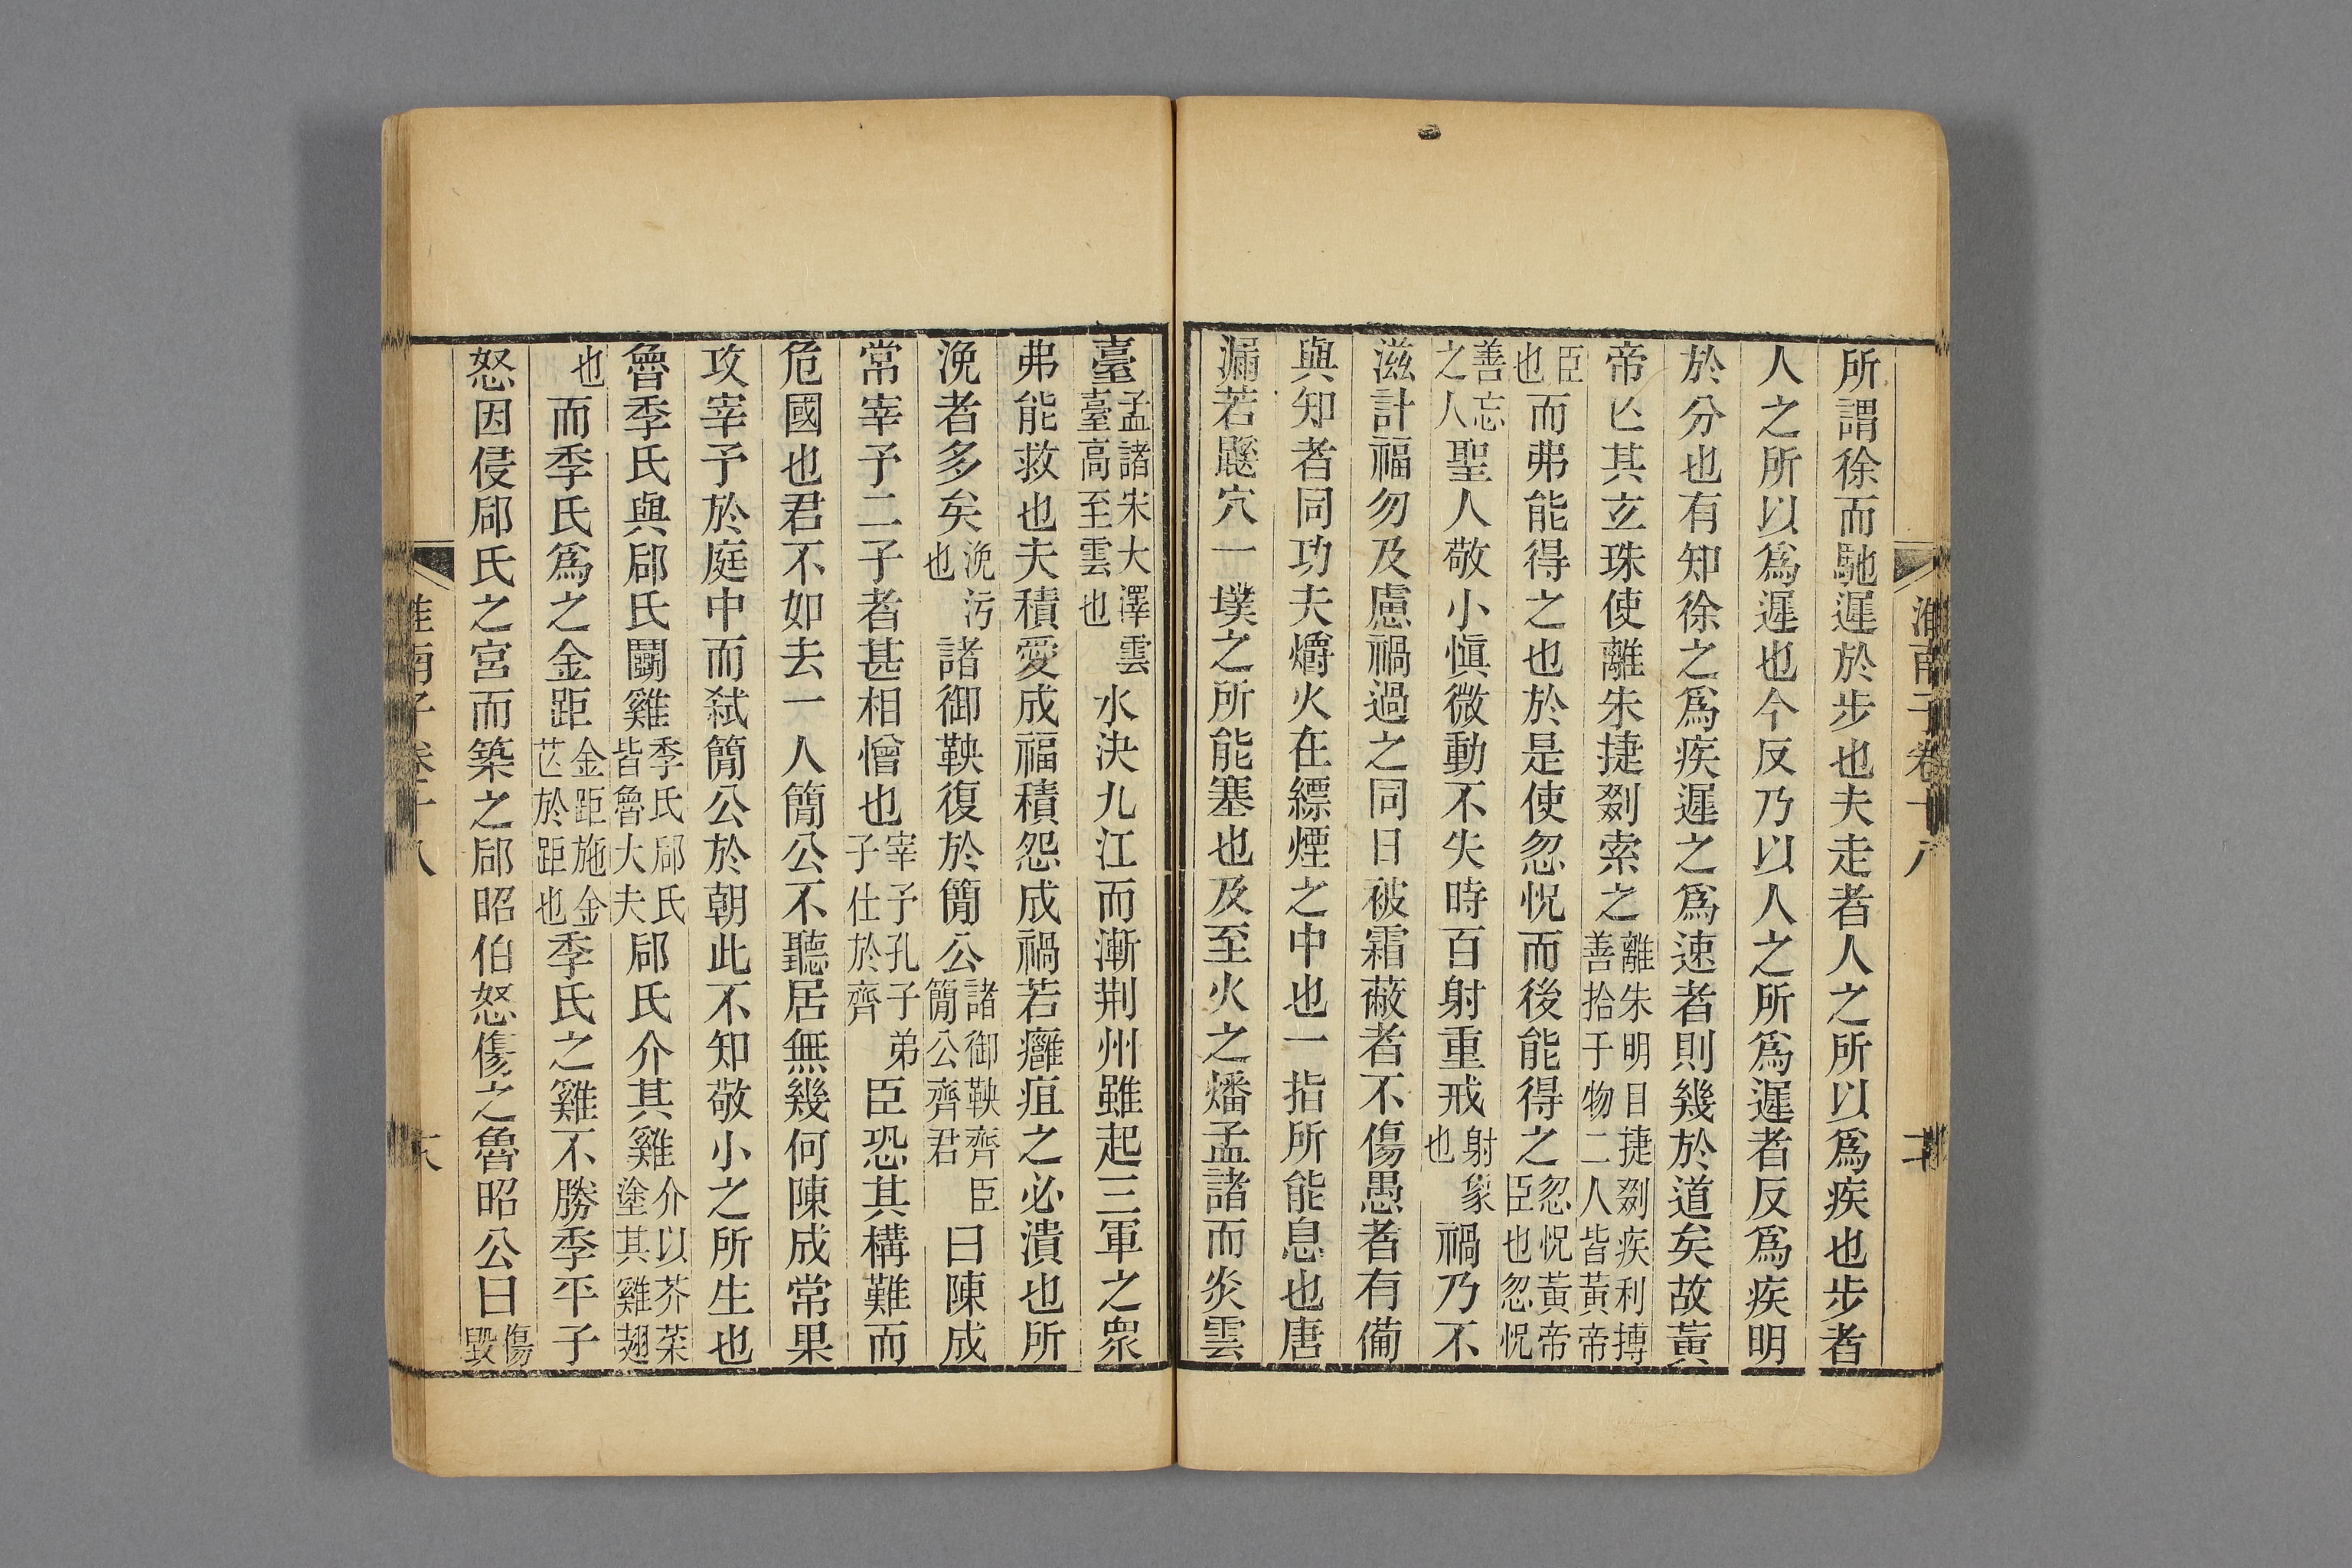 所謂徐而馳遲於步也夫走者人之所以爲疾也步者
人之所以爲遲也今反乃以人之所爲遲者反爲疾明
於分也有知徐之爲疾遲之爲速者則幾於道矣故黃
帝亾其玄珠使離朱捷剟索之離朱明目捷剟疾利搏善拾于物二人皆黃帝
臣也而弗能得之也於是使忽怳而後能得之忽怳黃帝臣也忽怳
善忘之人聖人敬小愼微動不失時百射重戒射象也禍乃不
滋計福勿及慮禍過之同日被霜蔽者不傷愚者有僃
與知者同功夫爝火在縹煙之中也一指所能息也唐
漏若鼷穴一墣之所能塞也及至火之燔孟諸而炎雲
臺孟諸宋大澤雲臺高至雲也水決九江而漸荆州雖起三軍之衆
弗能救也夫積愛成福積怨成禍若癰疽之必潰也所
浼者多矣浼污也諸御鞅復於簡公諸御鞅齊臣簡公齊君曰陳成
常宰予二子者甚相憎也宰予孔子弟子仕於齊臣恐其構難而
危國也君不如去一人簡公不聽居無幾何陳成常果
攻宰予於庭中而弑簡公於朝此不知敬小之所生也
魯季氏與郈氏鬭雞季氏郈氏皆魯大夫郈氏介其雞介以芥菜塗其雞翅
也而季氏爲之金距金距施金芒於距也季氏之雞不勝季平子
怒因侵郈氏之宮而築之郈昭伯怒傷之魯昭公曰傷毀
淮南子卷十八